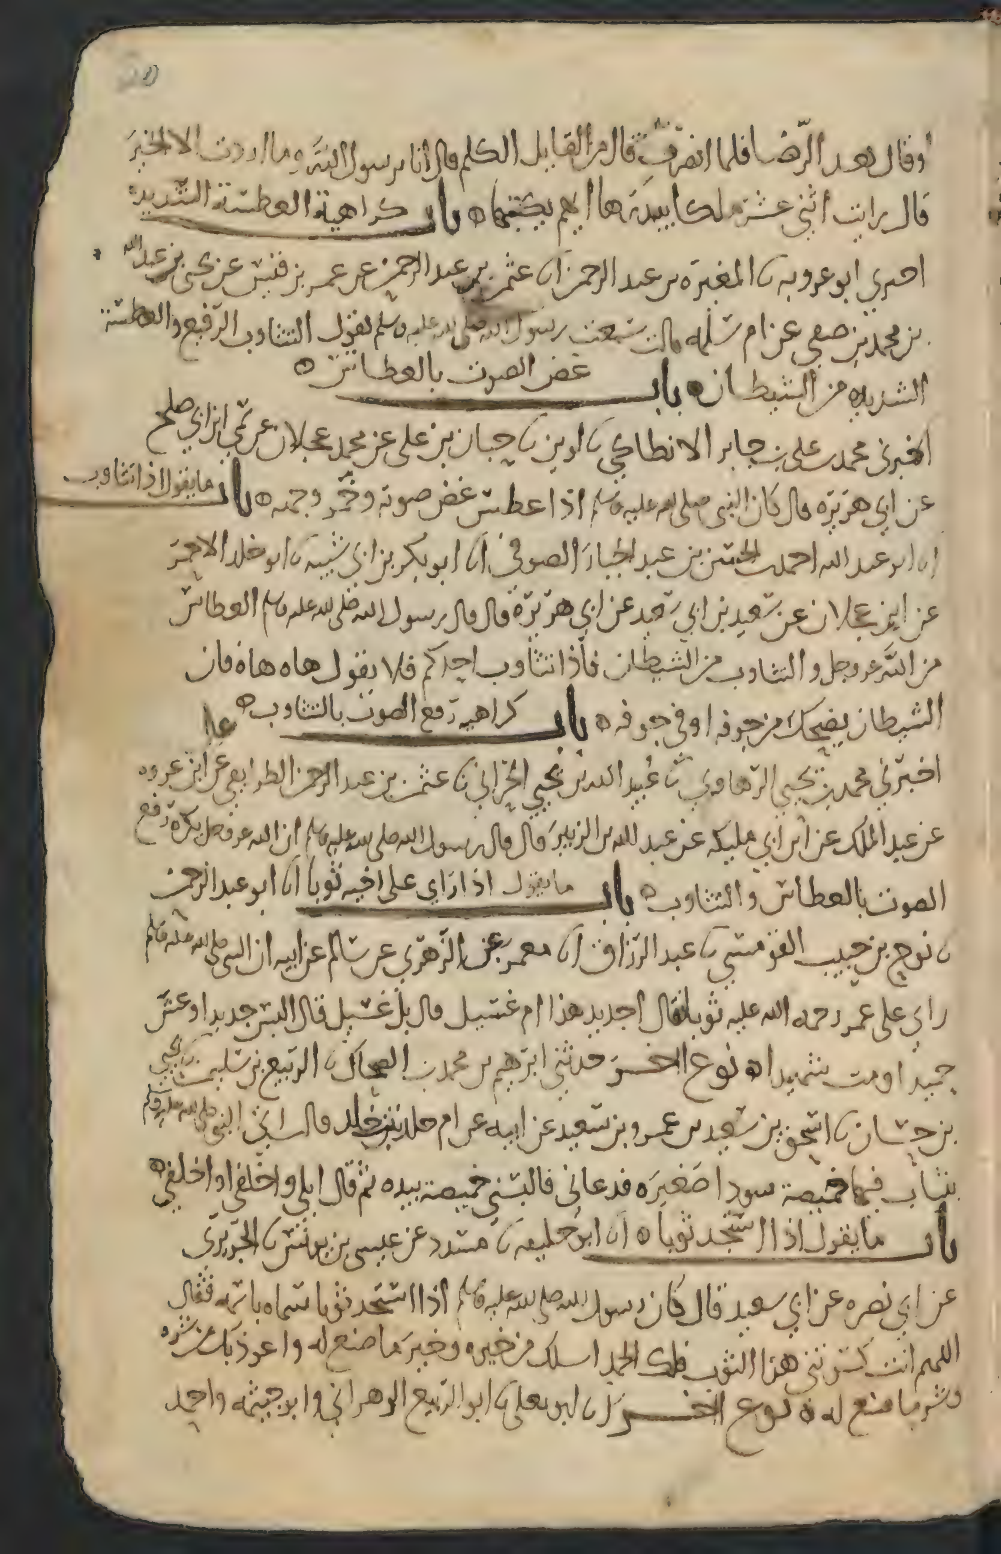 او قال بعد الرضا فلما انصرف قال من القايل الكلم قال انا يرسول الله وما اردت الا الخير
قال رايت اثنى عشر ملكا يبتدرها ايهم يكتبها ه باب كراهية العطسة الشديده
اخبرني ابو عروبه ثنا المغيره بن عبد الرحمن ثنا عثمن بن عبد الرحمن عن عمر بن قيس عن يحيى بن عبد الله
بن محمد بن صيفي عن ام سلمه قالت سمعت رسول الله صلى الله عليه وسلم يقول التثاوب الرفيع والعطسة
الشديده من الشيطان ه باب غض الصوت بالعطاس ه
اخبرني محمد بن علي بن جابر الانطاكي ثنا لوين ثنا حبان بن علي عن محمد عجلان عن سمي ابن ابي صلح
عن ابي هريره قال كان النبي صلى الله عليه وسلم اذا عطس غض صوته وخمر وجهه ه باب ما يقول اذا تثاوب
انا ابو عبد الله احمد بن الحسن بن عبد الجبار الصوفي ثنا ابو بكر بن ابي شيبه ثنا ابو خلد الاحمر
عن ابن عجلان عن سعيد بن ابي سعيد عن ابي هريرة قال قال رسول الله صلى الله عليه وسلم العطاس
من الله عز وجل و التثاوب من الشيطان فاذا تثاوب احدكم فلا يقول هاه هاه فان
الشيطان يضحك من جوفه او في جوفه ه باب كراهيه رفع الصوت بالتثاوب ه
اخبرني محمد بن يحيى الرهاوي ثنا عبيد الله بن يحيى الحراني ثنا عثمن بن عبد الرحمن الطرايفي عن ابن عروه
عن عبد الملك عن ابن ابي مليكه عن عبد الله بن الزبير قال قال رسول الله صلى الله عليه وسلم ان الله عز وجل يكره رفع
الصوت بالعطاس و التثاوب ه باب ما يقول اذا راي على اخيه ثوبا انا ابو عبد الرحمن
ثنا نوح بن حبيب القومسي ثنا عبد الرزاق انا معمر عن الزهري عن سالم عن ابيه ان النبي صلى الله عليه وسلم
راى على عمر رحمه الله عليه ثوبا فقال اجديد هذا ام غسيل قال بل غسيل قال البس جديدا وعش
حميدا ومت شهيدا ه نوع اخر حدثني ابرهيم بن محمد بن الضحاك ثنا الربيع بن سليمن ثنا يحيى
بن حسان ثنا اسحق بن سعيد بن عمرو بن سعيد عن ابيه عن ام خلد بنت خلد قالت اتي النبي صلى الله عليه وسلم
بثياب فيها خميصة سودا صغيره فدعاني فالبسني خميصة بيده ثم قال ابلي واخلقي ابلي واخلقي ه
باب ما يقول اذا استجد ثوبا ه انا ابو خليفه ثنا مسدد عن عيسى بن يونس ثنا الجريري
عن ابي نضره عن ابي سعيد قال كان رسول الله صلى الله عليه وسلم اذا استجد ثوبا سماه باسمه فقال
اللهم انت كسوتني هذا الثوب فلك الحمد اسلك من خيره وخير ما صنع له واعوذ بك من شره
وشر ما صنع له ه نوع اخر ثنا ابو يعلى ثنا ابو الربيع الزهراني وابو خيثمه واحمد